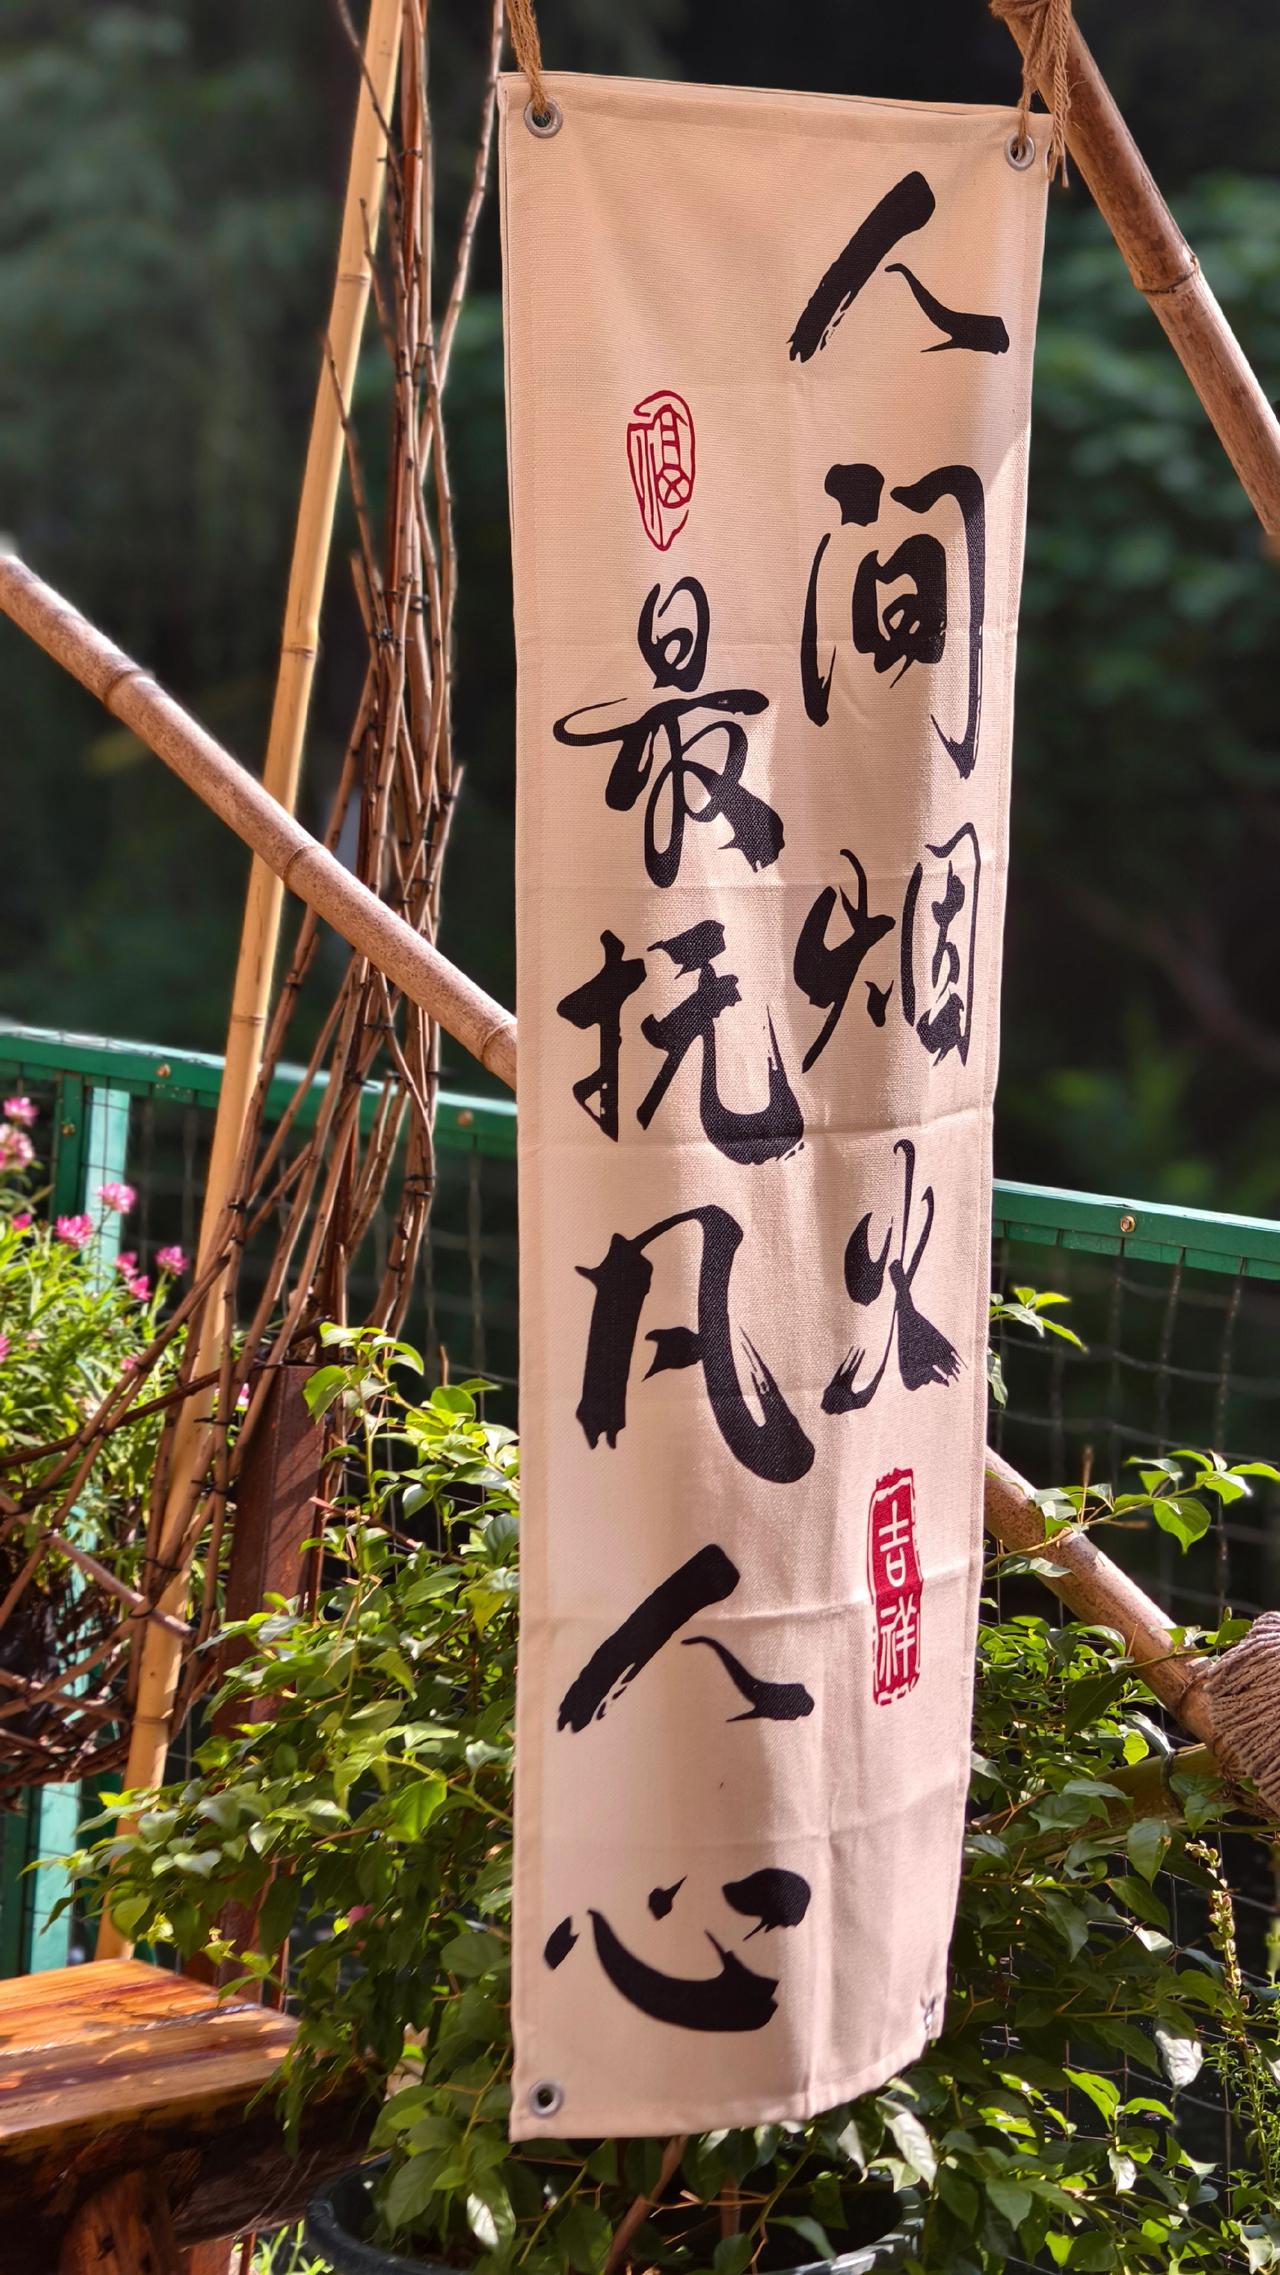 人间烟火
吉祥
福
最抚凡人心